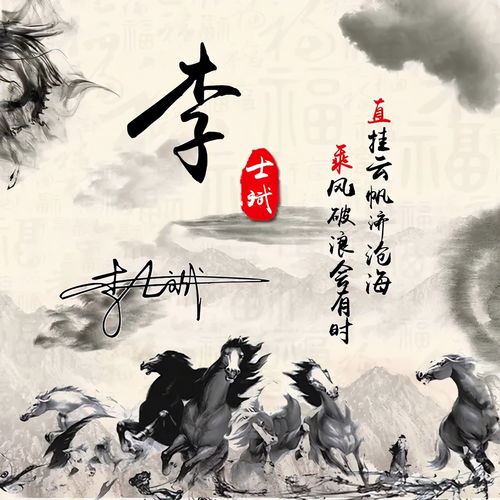 李
士斌
直挂云帆济沧海
乘风破浪会有时
李士斌